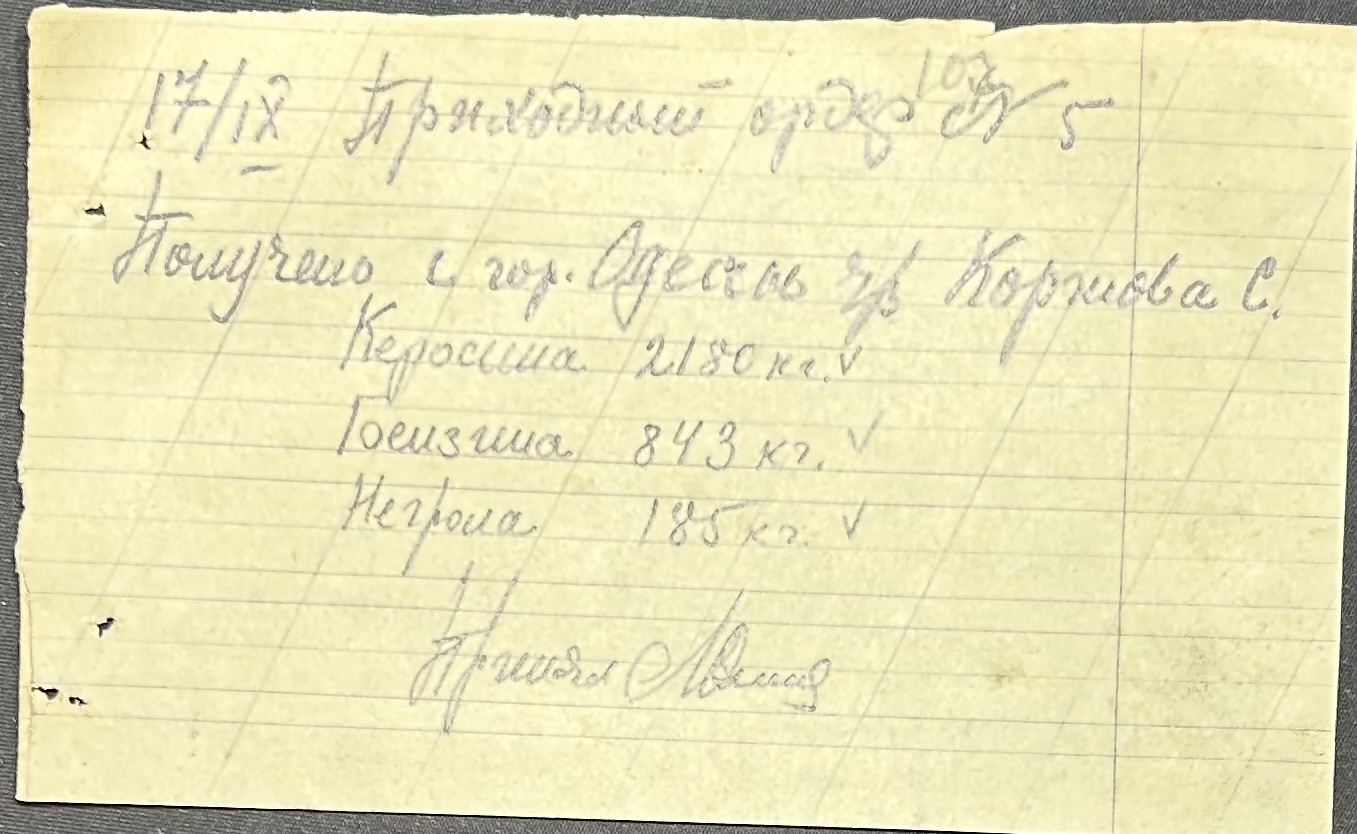 107
17/IX Приходный ордер № 5
Получено с гор. Одессы ч/з Коржова С.
Керосина 2180 кг. ✓
843 кг. ✓
Негрола 185 кг. ✓
Принял